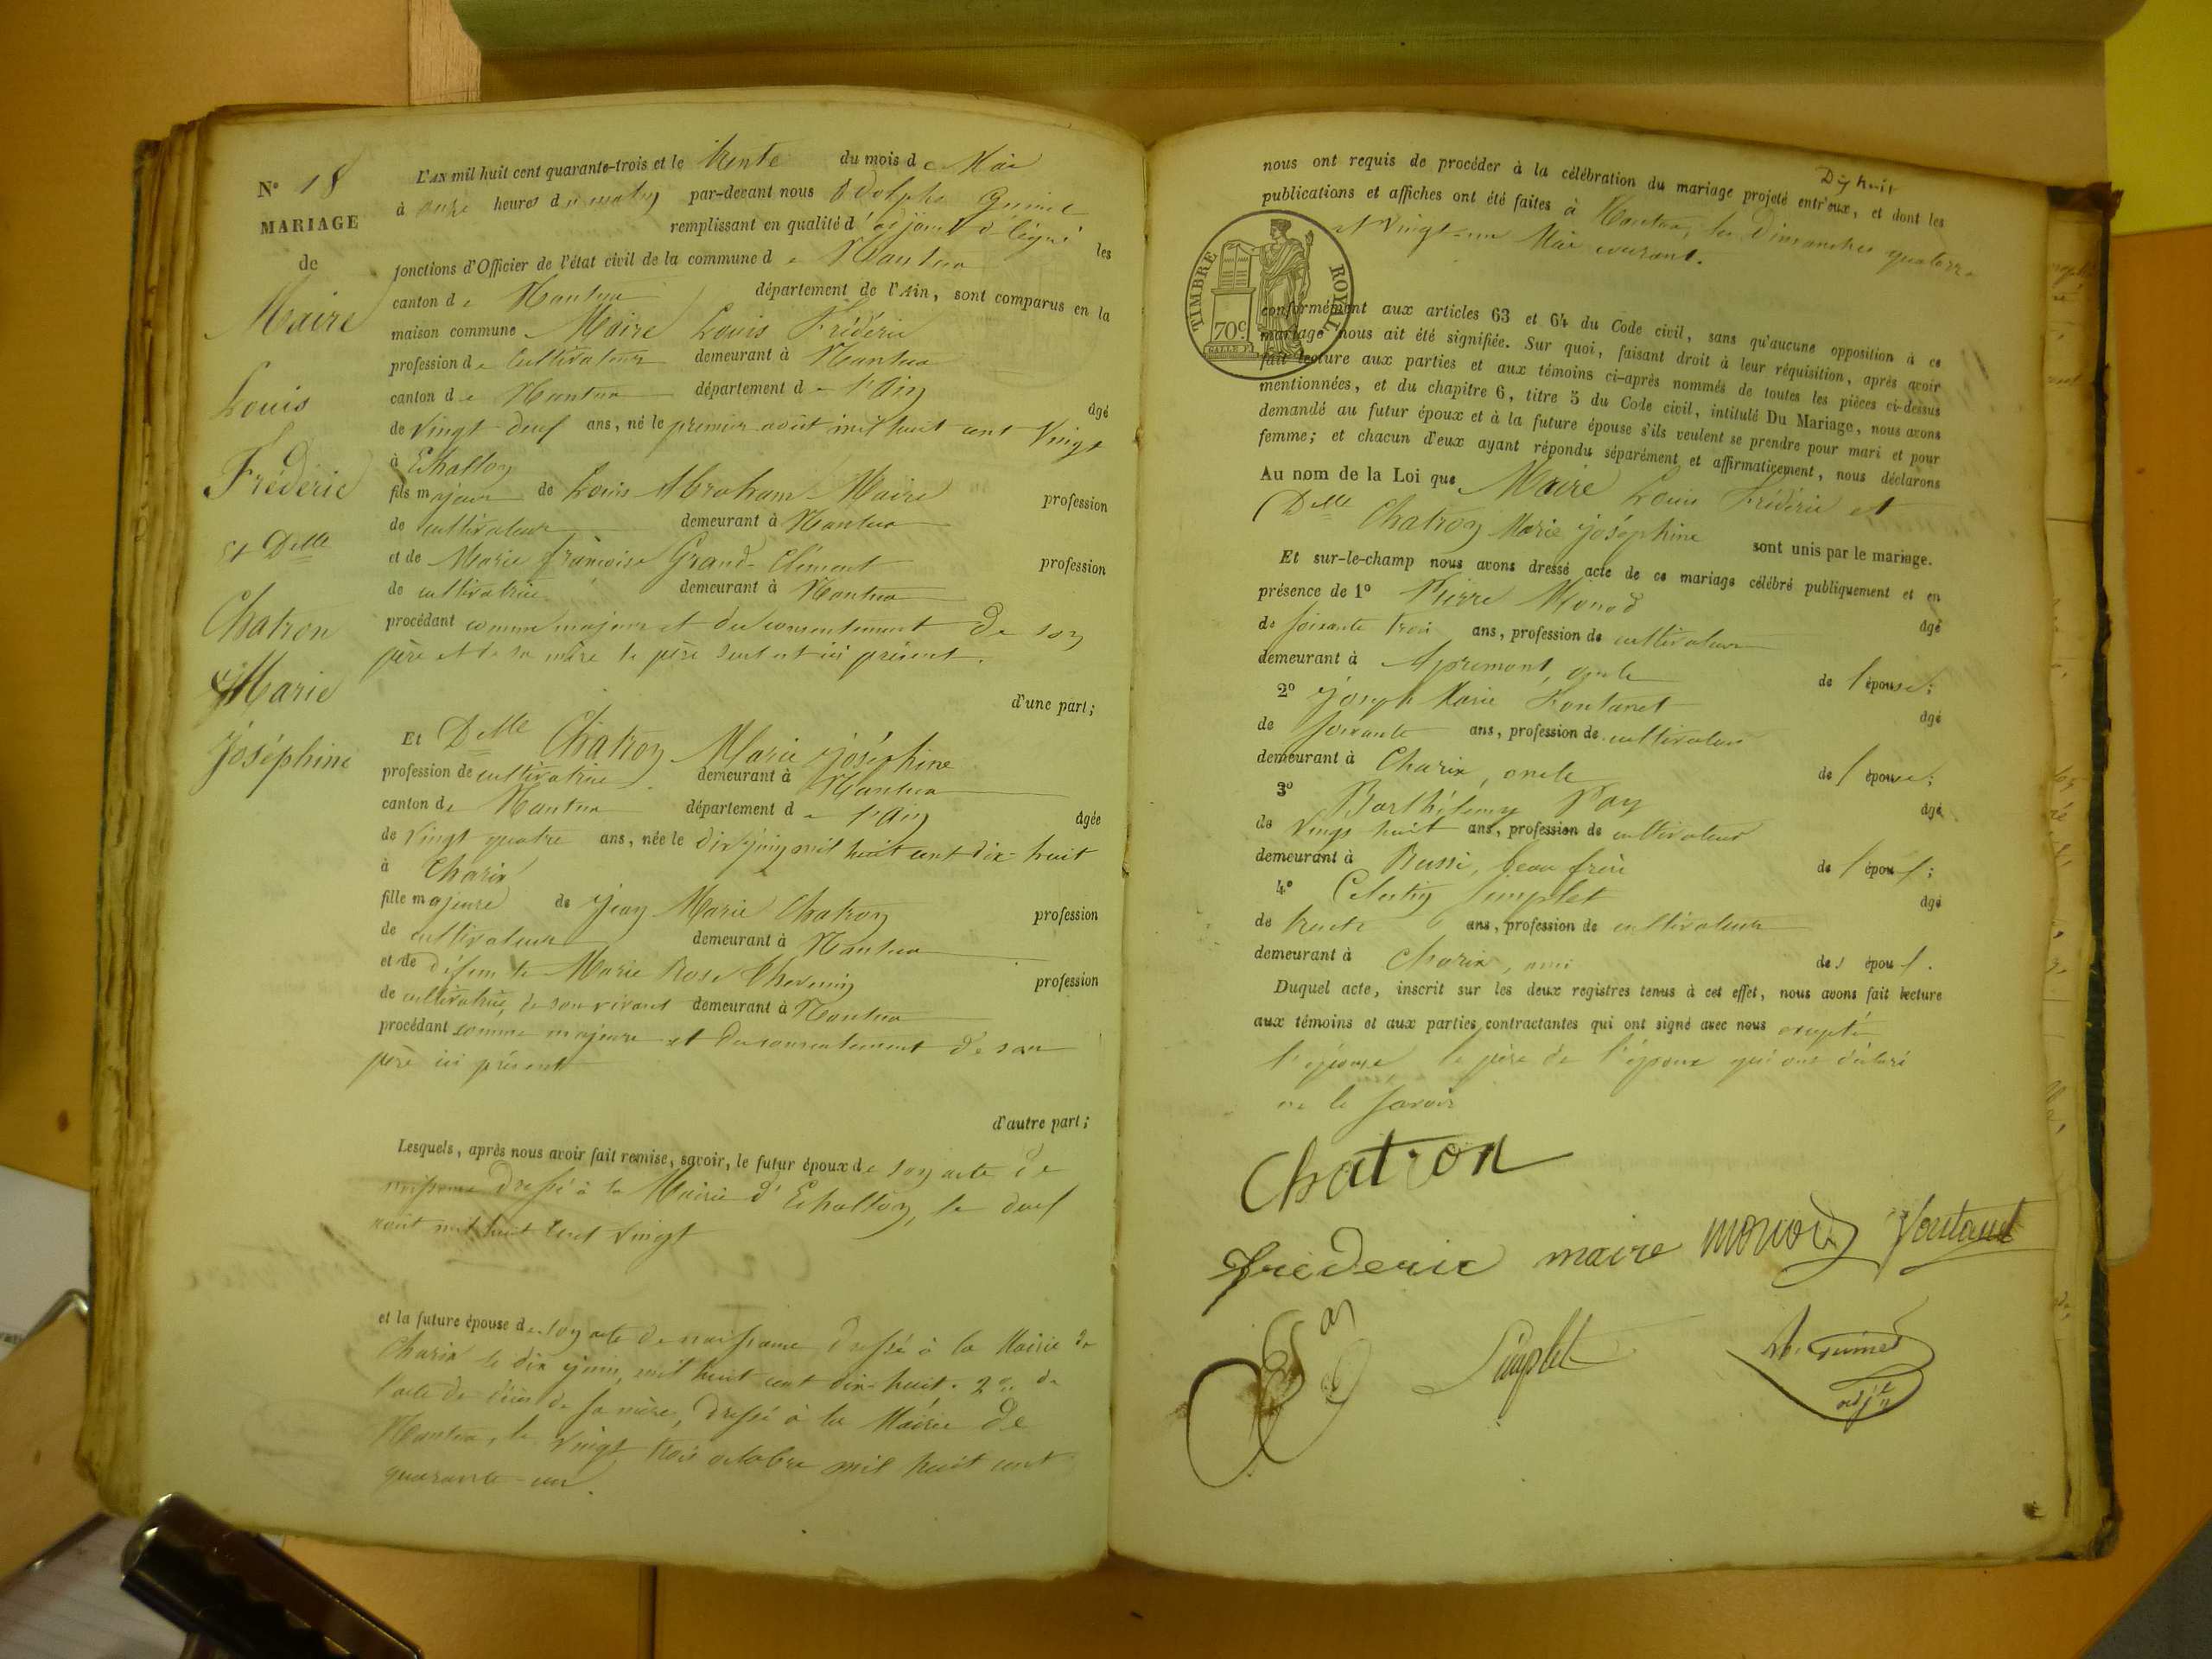 N° 18
MARIAGE
de
Maire
Louis
Fréderic
et Delle
Chatron
Marie
Joséphine
L'AN mil huit cent quarante-trois et le trente du mois de Mai
à onze heures du matin par-devant nous Adolphe Guinet
remplissant en qualité d'adjoint délégué les
fonctions d'Officier de l'état civil de la commune de Nantua
canton de Nantua département de l'Ain, sont comparus en la
maison commune Maire Louis Fréderic
profession de Cultivateur demeurant à Nantua
canton de Nantua département de l'Ain âgé
de Vingt deux ans, né le premier août mil huit cent Vingt
à Echallon
fils majeur de Louis Abraham Maire profession
de cultivateur demeurant à Nantua
et de Marie françoise Grand-Clément profession
de cultivatrice demeurant à Nantua
procédant comme majeur et du consentement de son
père et de sa mère le père seul est ici présent.
d'une part;
Et Delle Chatron Marie joséphine
profession de cultivatrice demeurant à Nantua
canton de Nantua département de l'Ain âgée
de Vingt quatre ans, née le dix juin mil huit cent dix-huit
à Charix
fille majeure de Jean Marie Chatron profession
de cultivateur demeurant à Nantua
et de défunte Marie Rose Thevenin profession
de cultivatrice, de son vivant demeurant à Nantua
procédant comme majeure et du consentement de son
père ici présent
d'autre part;
Lesquels, après nous avoir fait remise, savoir, le futur époux de son acte de
naissance dressé à la Mairie d'Echallon, le deux
août mil huit cent vingt
et la future épouse de son acte de naissance dressé à la Mairie de
Charix le dix juin, mil huit cent dix-huit. 2° de
l'acte de décès de sa mère, dressé à la Mairie de
Nantua, le vingt trois octobre mil huit cent
quarante-un.
Dix huit
nous ont requis de procéder à la célébration du mariage projeté entr'eux, et dont les
publications et affiches ont été faites à Nantua, les Dimanches quatorze
et Vingt-un Mai courant.
TIMBRE ROYAL
70c
conformément aux articles 63 et 64 du Code civil, sans qu'aucune opposition à ce
mariage nous ait été signifiée. Sur quoi, faisant droit à leur réquisition, après avoir
fait lecture aux parties et aux témoins ci-après nommés de toutes les pièces ci-dessus
mentionnées, et du chapitre 6, titre 5 du Code civil, intitulé Du Mariage, nous avons
demandé au futur époux et à la future épouse s'ils veulent se prendre pour mari et pour
femme; et chacun d'eux ayant répondu séparément et affirmativement, nous déclarons
Au nom de la Loi que Maire Louis Fréderic et
Delle Chatron Marie joséphine sont unis par le mariage.
Et sur-le-champ nous avons dressé acte de ce mariage célébré publiquement et en
présence de 1° Pierre Monod âgé
de soixante trois ans, profession de cultivateur
demeurant à Apremont, oncle de l'épouse;
2° joseph Marie Fontanet âgé
de soixante ans, profession de cultivateur
demeurant à Charix, oncle de l'épouse;
3° Barthélemy âgé
de Vingt huit ans, profession de cultivateur
demeurant à beau frère de l'épou
4° Célestin Simplet âgé
de trente ans, profession de cultivateur
demeurant à Charix, ami des épou
Duquel acte, inscrit sur les deux registres tenus à cet effet, nous avons fait lecture
aux témoins et aux parties contractantes qui ont signé avec nous excepté
l'épouse, le père de l'époux qui ont déclaré
ne le savoir
Chatron
fréderic maire monod fontanet
Simplet
Ad. Guinet
adjt